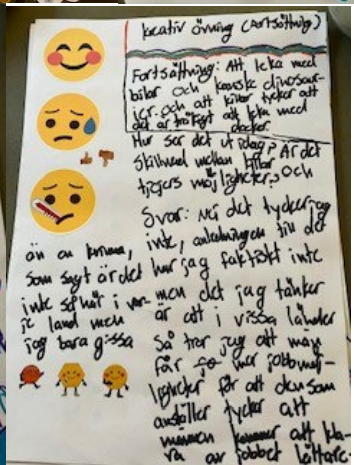 kreativ övning (fortsättning)
Fortsättning: Att leka med
bilar och kanske dinosaur-
ier och att killar tycker att
det är tråkigt att leka med
dockor.
Hur ser det ut idag? Är det
skillnad mellan killar
tjejers möjligheter? Och
Svar: Nej det tycker jag
inte, anledningen till det
har jag faktiskt inte
men det jag tänker
är att i vissa länder
så tror jag att man
får jo mer jobbmöj-
ligheter för att den som
anställer tycker att
mannen kommer att kla-
ra av jobbet lättare
än en kvinna,
som sagt är det
inte så här i var-
je land men
jag bara gissa